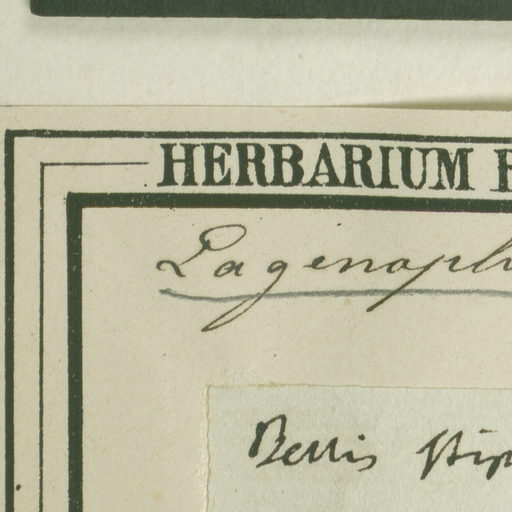 HERBARIUM
Lagenoph
Bellis stip